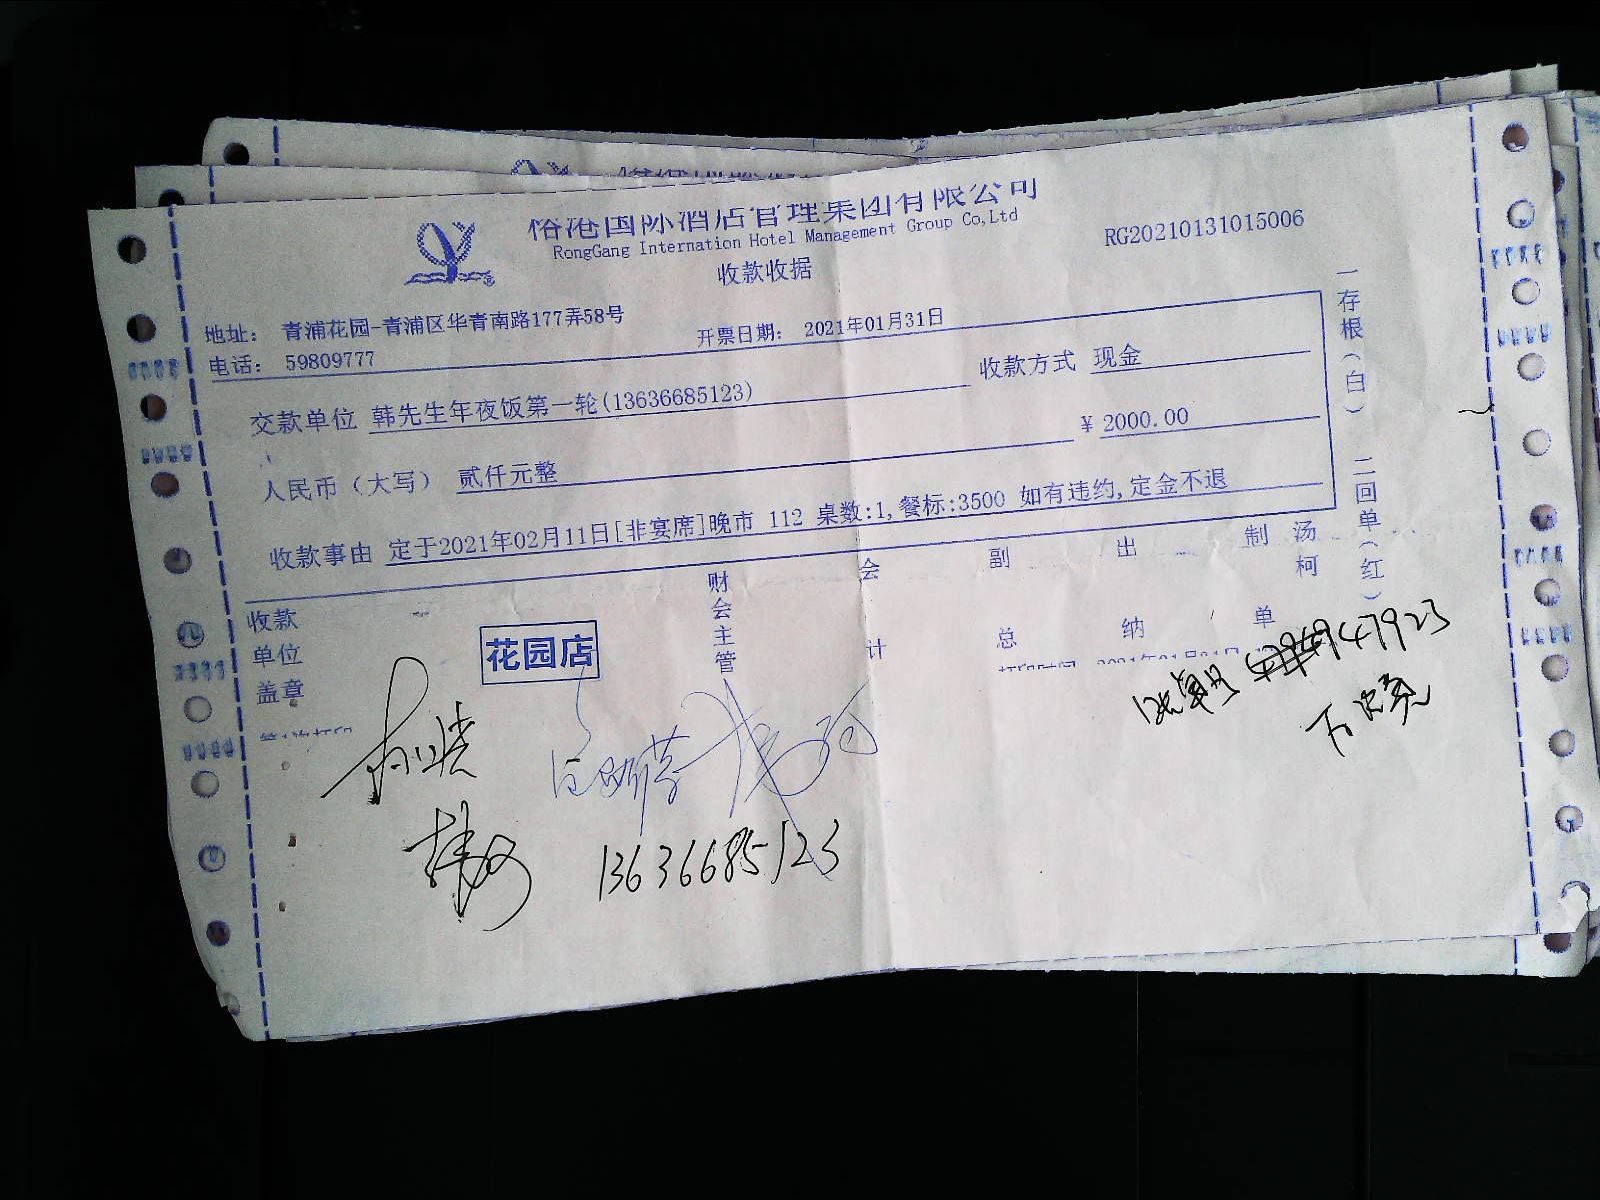 俗港国际酒店管理集团有限公司
RongGang Internation Hotel Management Group Co,Ltd
收款收据
RG20210131015006
地址： 青浦花园-青浦区华青南路177弄58号
电话： 59809777
开票日期： 2021年01月31日
交款单位 韩先生年夜饭第一轮(13636685123)
收款方式 现金
人民币（大写） 贰仟元整
￥ 2000.00
收款事由 定于2021年02月11日[非宴席]晚市 112 桌数:1,餐标:3500 如有违约,定金不退
一存根（白） 二回单（红）
收款单位盖章
花园店
财会主管
会计
副总
出纳
制单
汤柯
13636685123